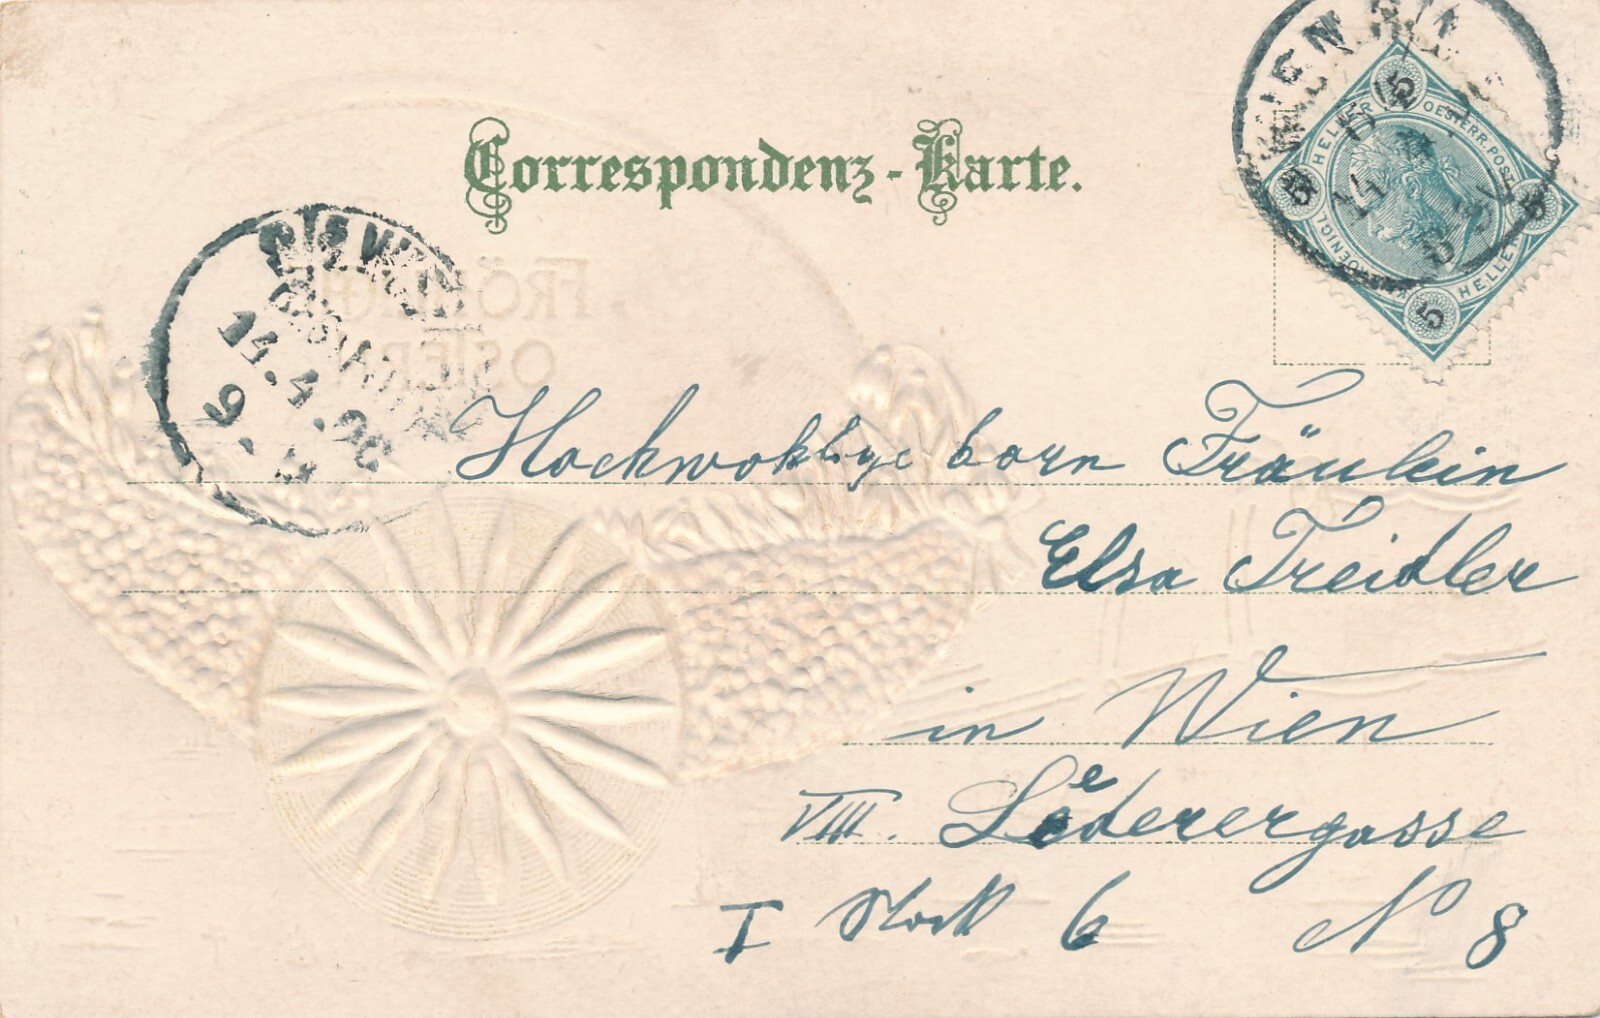 Correspondenz-Karte.
WIEN
5 HELLER
OESTERR. POST
HELLER 5
5
14.4.00
9
FRÖHLICHE
OSTERN
Hochwohlgeborn Fräulein
Elsa Treidler
in Wien
VIII. Lederergasse
I Stock 6 No 8